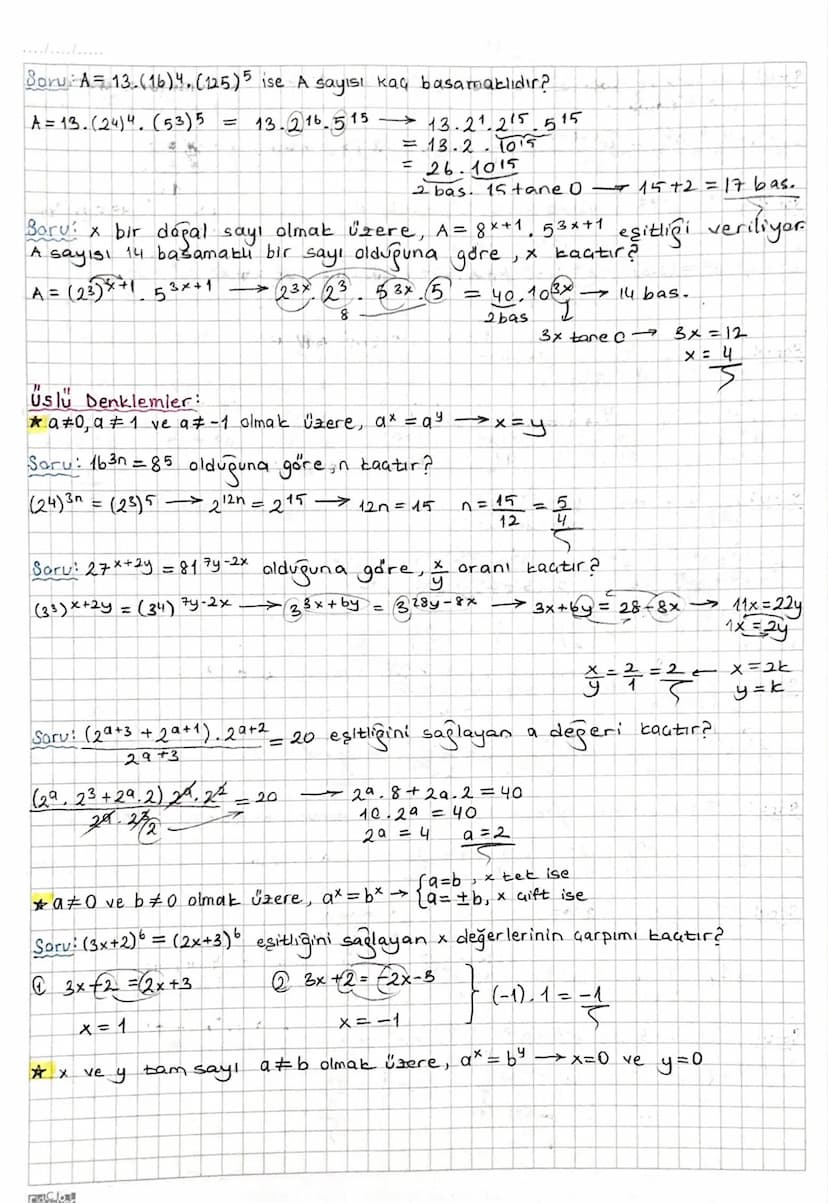 ..../..../.....
Soru: A = 13.(16)⁴.(125)⁵ ise A sayısı kaç basamaklıdır?
A = 13.(2⁴)⁴.(5³)⁵ = 13.2¹⁶.5¹⁵ → 13.2¹.2¹⁵.5¹⁵
= 13.2.10¹⁵
= 26.10¹⁵
2 bas. 15 tane 0 → 15+2 = 17 bas.
Soru: x bir doğal sayı olmak üzere, A = 8ˣ⁺¹.5³ˣ⁺¹ eşitliği veriliyor.
A sayısı 14 basamaklı bir sayı olduğuna göre, x kaçtır?
A = (2³)ˣ⁺¹.5³ˣ⁺¹ → 2³ˣ.2³.5³ˣ.5 = 40.10³ˣ → 14 bas.
8 2bas
3x tane 0 → 3x = 12
x = 4
Üslü Denklemler:
★ a≠0, a≠1 ve a≠-1 olmak üzere, aˣ = aʸ → x = y
Soru: 16³ⁿ = 8⁵ olduğuna göre, n kaçtır?
(2⁴)³ⁿ = (2³)⁵ → 2¹²ⁿ = 2¹⁵ → 12n = 15 n = 15/12 = 5/4
Soru: 27ˣ⁺²ʸ = 81⁷ʸ⁻²ˣ olduğuna göre, x/y oranı kaçtır?
(3³)ˣ⁺²ʸ = (3⁴)⁷ʸ⁻²ˣ → 3³ˣ⁺⁶ʸ = 3²⁸ʸ⁻⁸ˣ → 3x+6y = 28-8x → 11x=22y
1x = 2y
x/y = 2/1 = 2 ← x = 2k
y = k
Soru: (2ᵃ⁺³ + 2ᵃ⁺¹).2ᵃ⁺² / 2ᵃ⁺³ = 20 eşitliğini sağlayan a değeri kaçtır?
(2ᵃ.2³ + 2ᵃ.2) 2ᵃ.2² / 2ᵃ.2³ 2 = 20 → 2ᵃ.8 + 2ᵃ.2 = 40
10.2ᵃ = 40
2ᵃ = 4 a = 2
★ a≠0 ve b≠0 olmak üzere, aˣ = bˣ → { a=b, x tek ise
a = ±b, x çift ise
Soru: (3x+2)⁶ = (2x+3)⁶ eşitliğini sağlayan x değerlerinin çarpımı kaçtır?
① 3x+2 = 2x+3 ② 3x+2 = -2x-3 } (-1).1 = -1
x = 1 x = -1
★ x ve y tam sayı a≠b olmak üzere, aˣ = bʸ → x=0 ve y=0